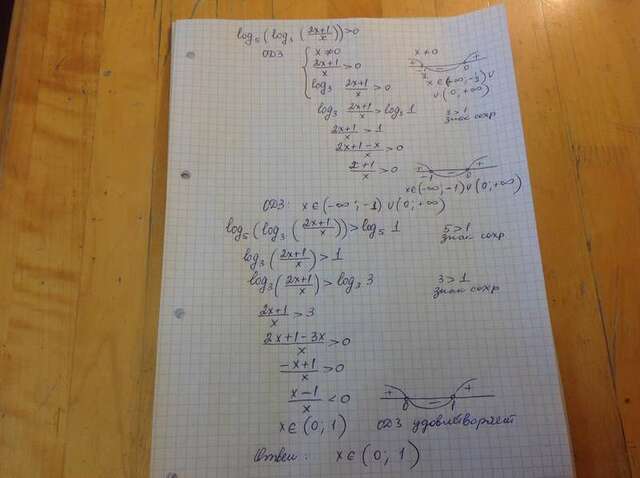 log₅(log₃(2x+1/x))>0
ОДЗ { x≠0 x≠0
2x+1/x >0 + - 0 +
log₃ 2x+1/x >0 x∈(-∞; -½)∪
∪(0; +∞)
log₃ 2x+1/x > log₃ 1 3>1
знак сохр
2x+1/x > 1
2x+1-x/x >0
x+1/x >0 + -1 - 0 +
x∈(-∞; -1)∪(0; +∞)
ОДЗ: x∈(-∞; -1)∪(0; +∞)
log₅(log₃(2x+1/x))>log₅ 1 5>1
знак сохр
log₃(2x+1/x)>1
log₃(2x+1/x)>log₃ 3 3>1
знак сохр
2x+1/x >3
2x+1-3x/x >0
-x+1/x >0
x-1/x <0 + 0 - 1 +
x∈(0; 1) ОДЗ удовлетворяет
Ответ: x∈(0; 1)